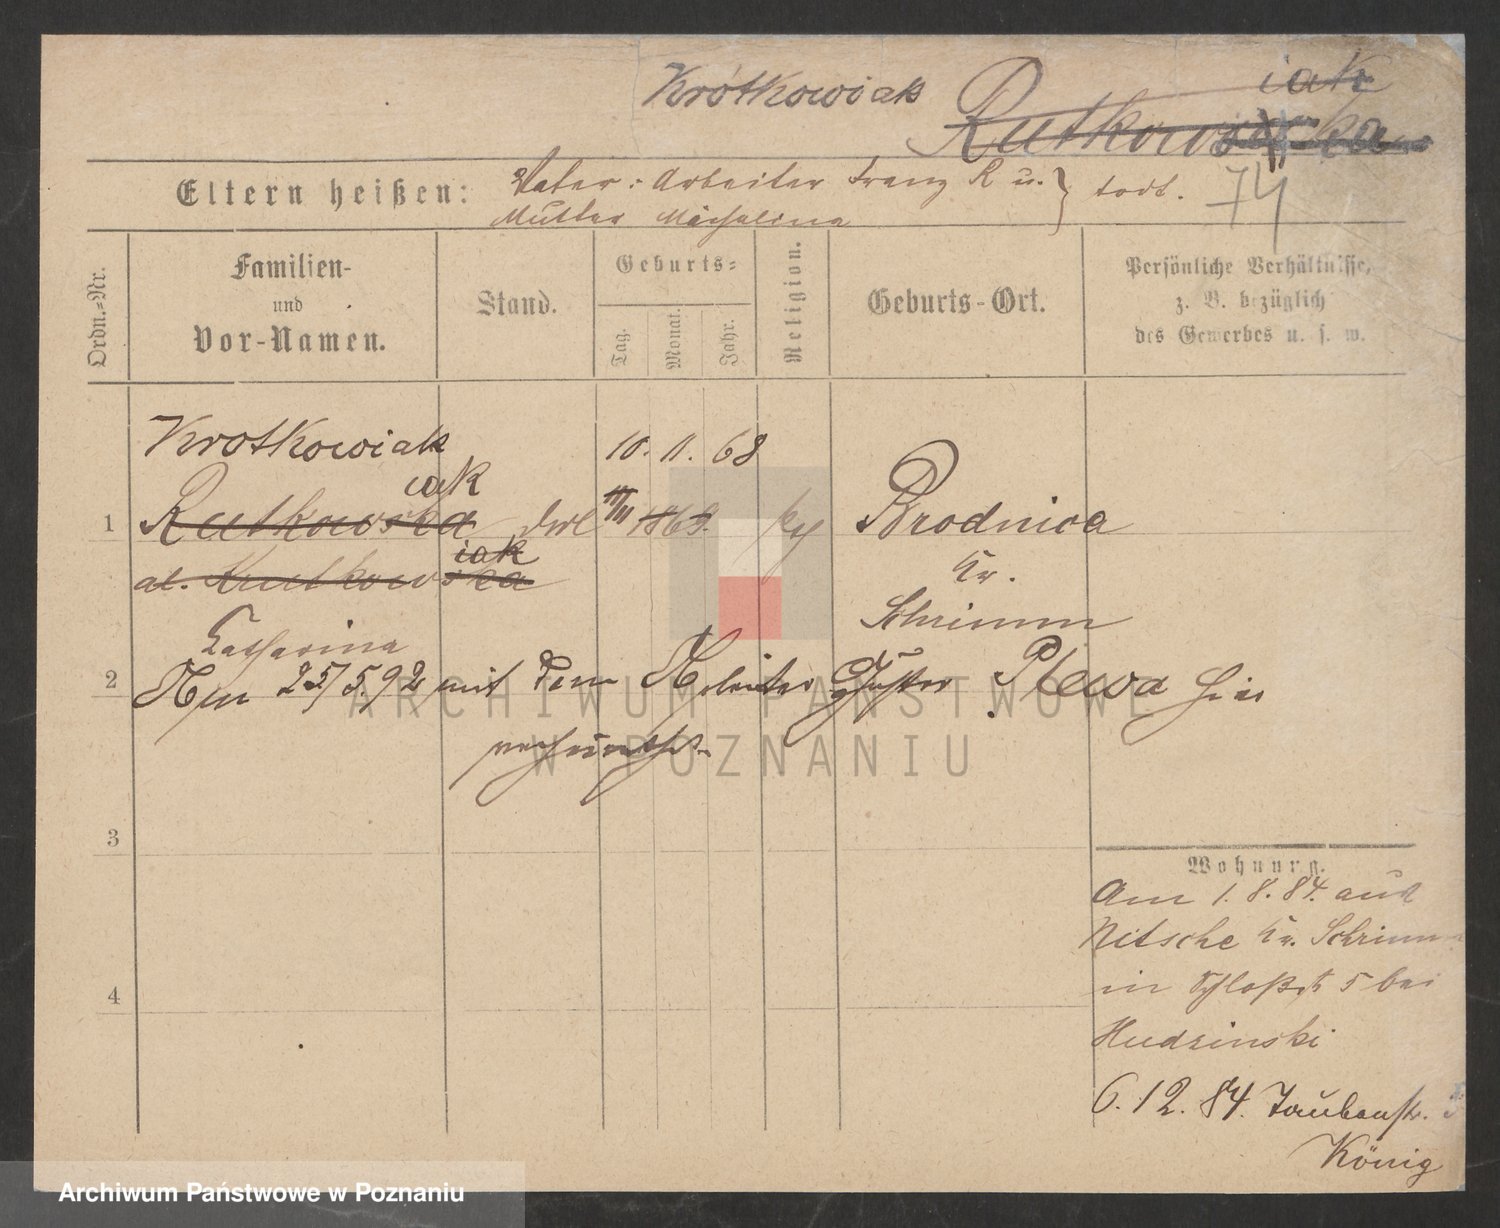 Krotkowiak Rutkowska iak
Eltern heißen: Vater: Arbeiter Franz R u. } todt. 74
Mutter Michalina
Ordn.-Nr.
Familien-
und
Vor-Namen.
Stand.
Geburts-
Tag. Monat. Jahr.
Religion.
Geburts-Ort.
Persönliche Verhältnisse,
z. B. bezüglich
des Gewerbes u. s. w.
Krotkowiak 10. 11. 68
iak
1 Rutkowska 1869. Brodnica
iak
al. Krutkowska Kr.
Catharina Schrimm
2 Am 25/5.92 mit dem Arbeiter Plewa hier
verheirathet.
3
Wohnung.
Am 1. 8. 84. aus
Nitsche Kr. Schrimm
4 in Schloßstr 5 bei
Hudzinski
6. 12. 84. Taubenstr. 5
König
ARCHIWUM PAŃSTWOWE
W POZNANIU
Archiwum Państwowe w Poznaniu